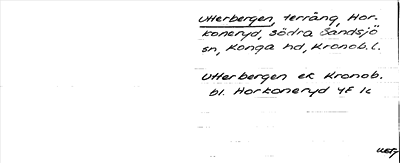 Utterbergen, terräng, Hor-
koneryd, Södra Sandsjö
sn, Konga hd, Kronob. l.
Utterbergen ek Kronob.
bl. Horkoneryd 4F 1c